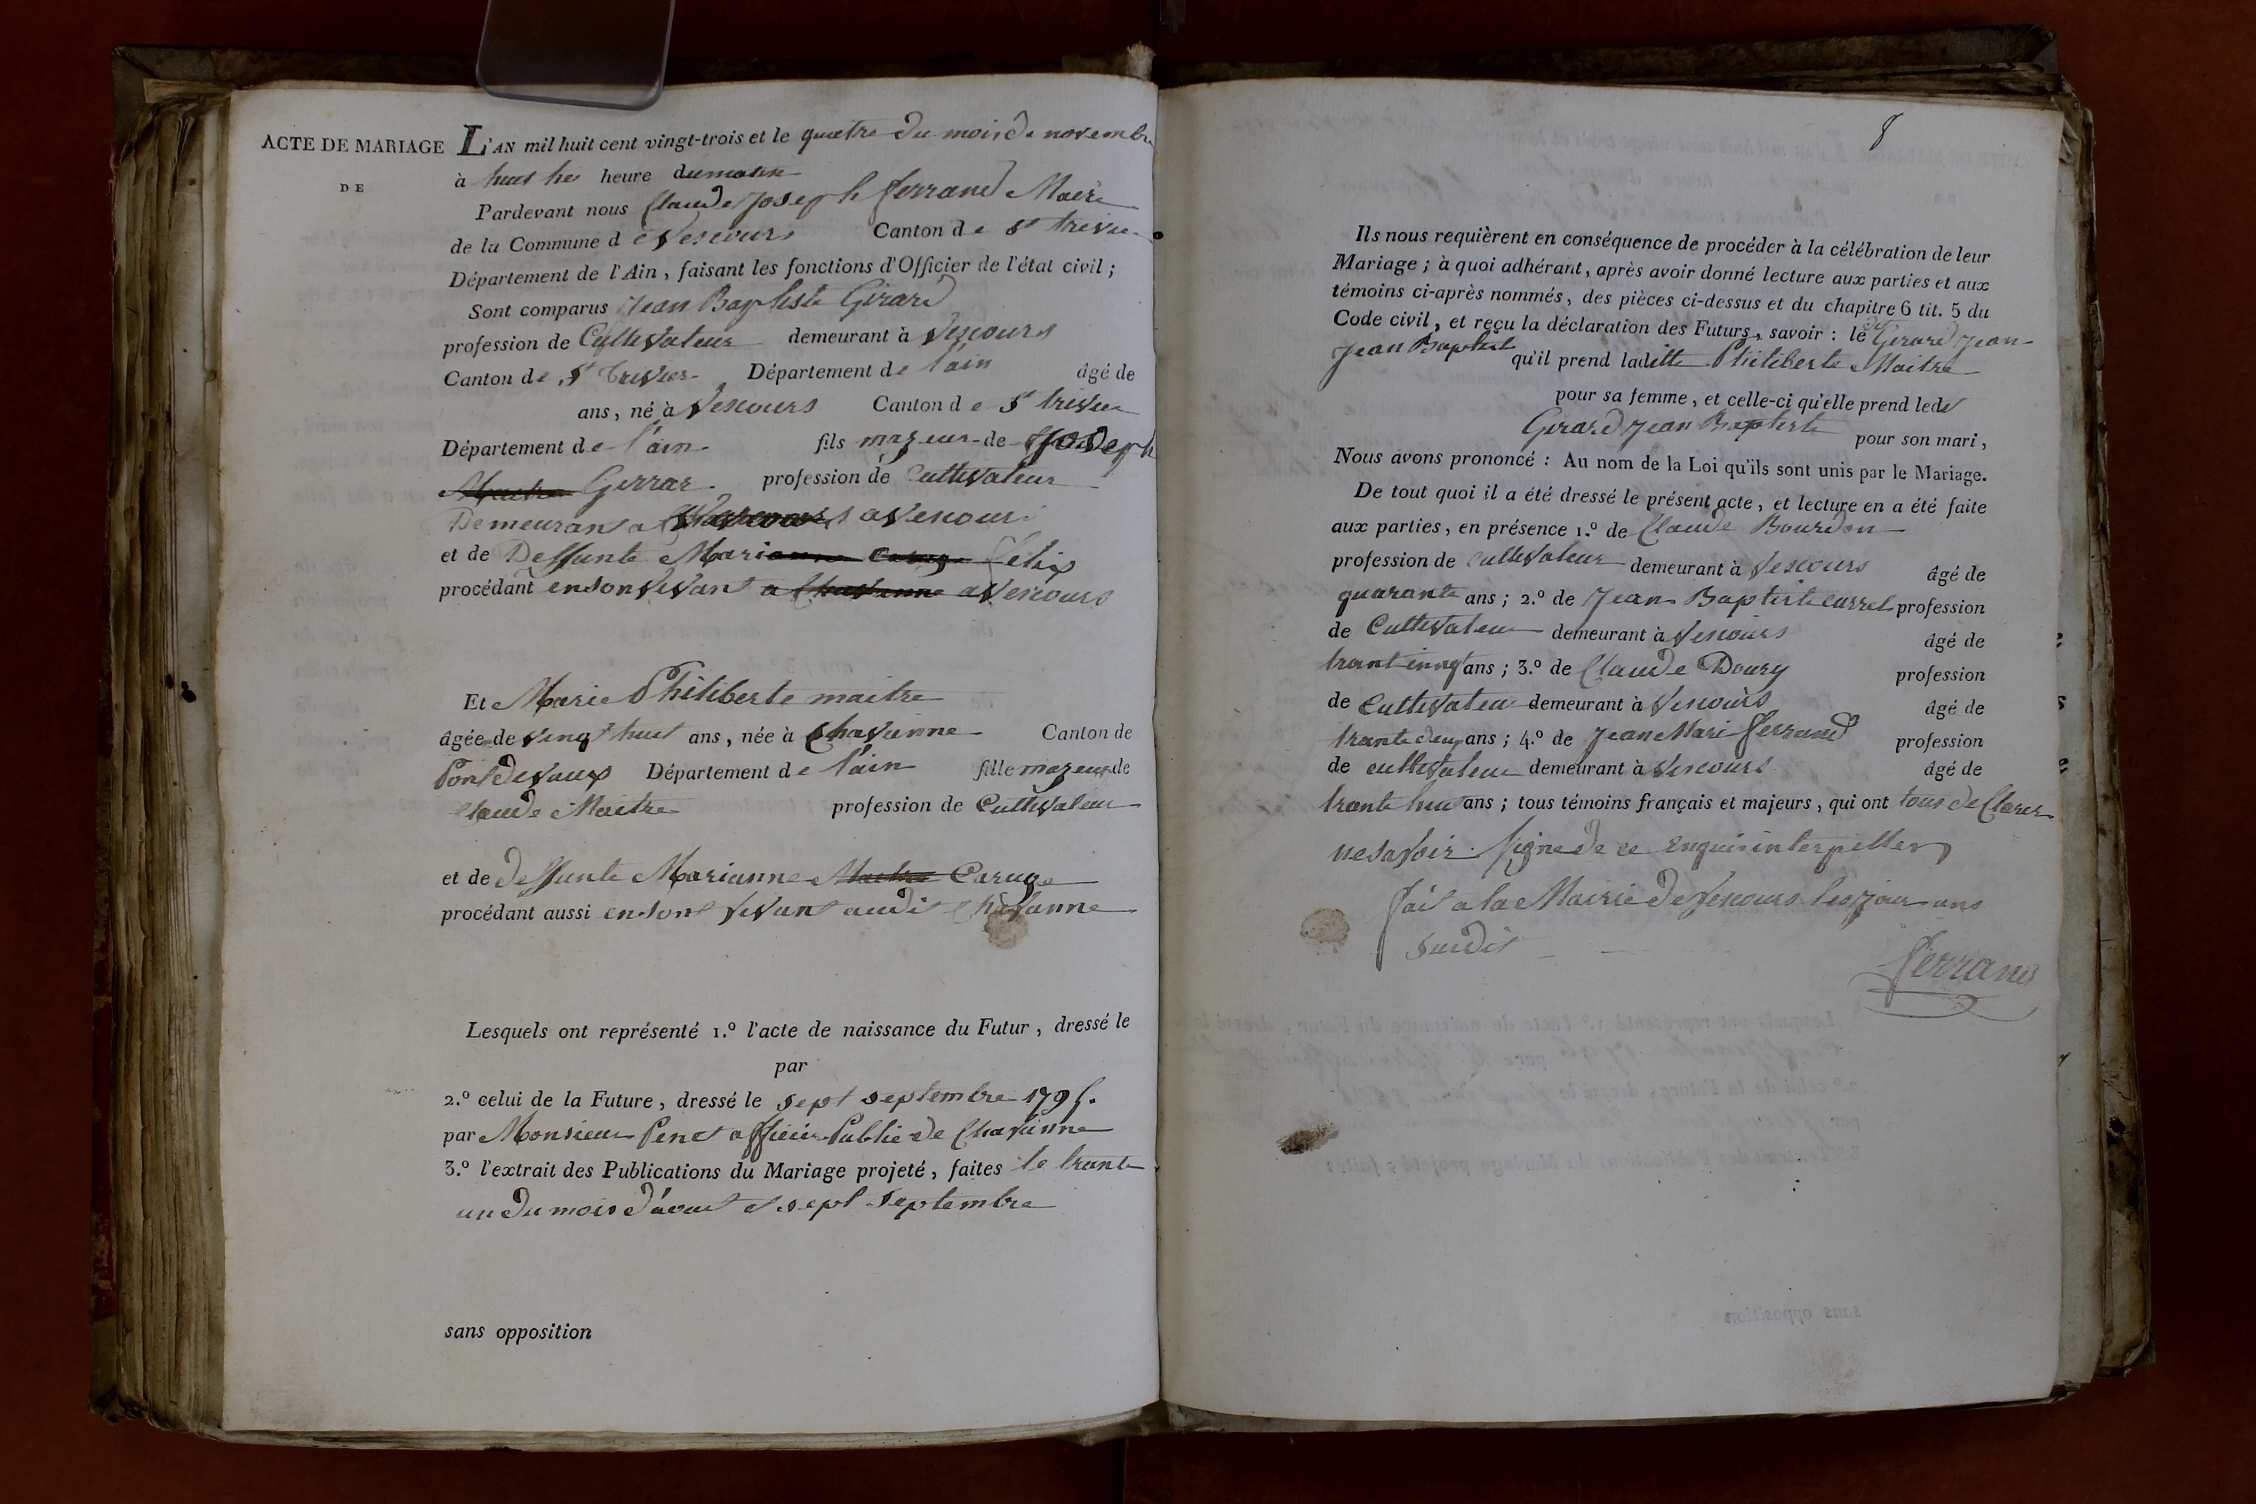 ACTE DE MARIAGE
DE
L'AN mil huit cent vingt-trois et le quatre du mois de novembre
à huit heure du matin
Pardevant nous Claude Joseph Ferrand Maire
de la Commune d e Vescours Canton d e St trivier
Département de l'Ain, faisant les fonctions d'Officier de l'état civil;
Sont comparus Jean Baptiste Girard
profession de Cultivateur demeurant à Vescours
Canton de St Trivier Département de l'ain âgé de
ans, né à Vescours Canton d e St trivier
Département de l'ain fils mageur de Joseph
Maitre Gerrar profession de Cultivateur
Demeurant a a Vescours
et de Deffunte Marianne Caruge Felix
procédant en son vivant a Chavanne a Vescours
Et Marie Philiberte maitre
âgée de vingt huit ans, née à Chavanne Canton de
Pontdevaux Département de l'ain fille mageur de
Claude Maitre profession de Cultivateur
et de deffunte Marianne Maitre Caruge
procédant aussi en sont vivant audit Chavanne
Lesquels ont représenté 1.º l'acte de naissance du Futur, dressé le
par
2.º celui de la Future, dressé le sept septembre 1795.
par Monsieur Penet officier Public de Chavanne
3.º l'extrait des Publications du Mariage projeté, faites le trante
un du mois d'aout et sept septembre
sans opposition
8
Ils nous requièrent en conséquence de procéder à la célébration de leur
Mariage; à quoi adhérant, après avoir donné lecture aux parties et aux
témoins ci-après nommés, des pièces ci-dessus et du chapitre 6 tit. 5 du
Code civil, et reçu la déclaration des Futurs, savoir: le dt Gerard Jean
Jean Baptist qu'il prend laditte Philiberte Maitre
pour sa femme, et celle-ci qu'elle prend ledt
Gerard Jean Baptiste pour son mari,
Nous avons prononcé: Au nom de la Loi qu'ils sont unis par le Mariage.
De tout quoi il a été dressé le présent acte, et lecture en a été faite
aux parties, en présence 1.º de Claude Bourdon
profession de Cultivateur demeurant à Vescours âgé de
quarante ans; 2.º de Jean Baptiste Carrel profession
de Cultivateur demeurant à Vescours âgé de
ans; 3.º de Claude Doury profession
de Cultivateur demeurant à Vescours âgé de
trante deux ans; 4.º de Jean Mari Ferrand profession
de cultivateur demeurant à Vescours âgé de
trante huit ans; tous témoins français et majeurs, qui ont tous declarer
ne savoir signe de ce enquis interpeller
fait a la Mairie de Vescours les jour ans
susdit
Ferrand